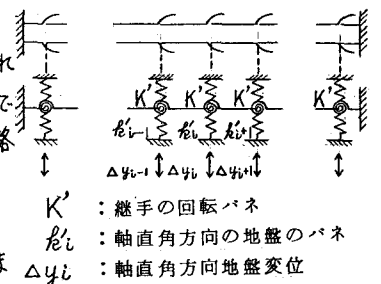 れ
で
K' K' K' K'
k'i-1 k'i k'i+1
Δyi-1 Δyi Δyi+1
K' : 継手の回転バネ
k'i : 軸直角方向の地盤のバネ
ま Δyi : 軸直角方向地盤変位